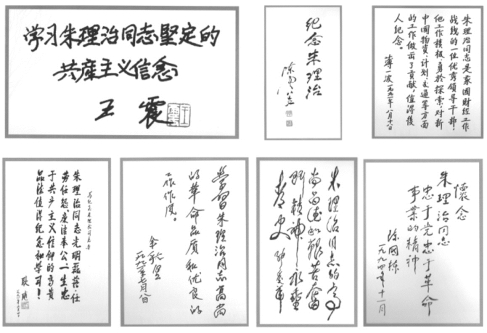 学习朱理治同志坚定的
共产主义信念
王震
纪念朱理治
朱理治同志是我国财经工作
战线的一位优秀领导干部，
他工作积极，勇于探索，对新
中国物资、计划、交通等方面
的工作做出了贡献，值得后
人纪念。
薄一波
朱理治同志光明磊落，任
劳任怨，克己奉公，一生忠
于共产主义事业的高贵
品德值得纪念和学习！
学习朱理治同志高尚
的革命品质和优良的
工作作风。
余秋里
朱理治同志的高
尚品德和艰苦奋
斗精神永垂
青史
怀念
朱理治同志
忠于党忠于革命
事业的精神
陈国栋
一九九四年十一月